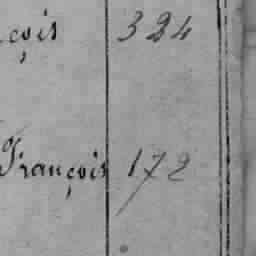 çois 324
François 172